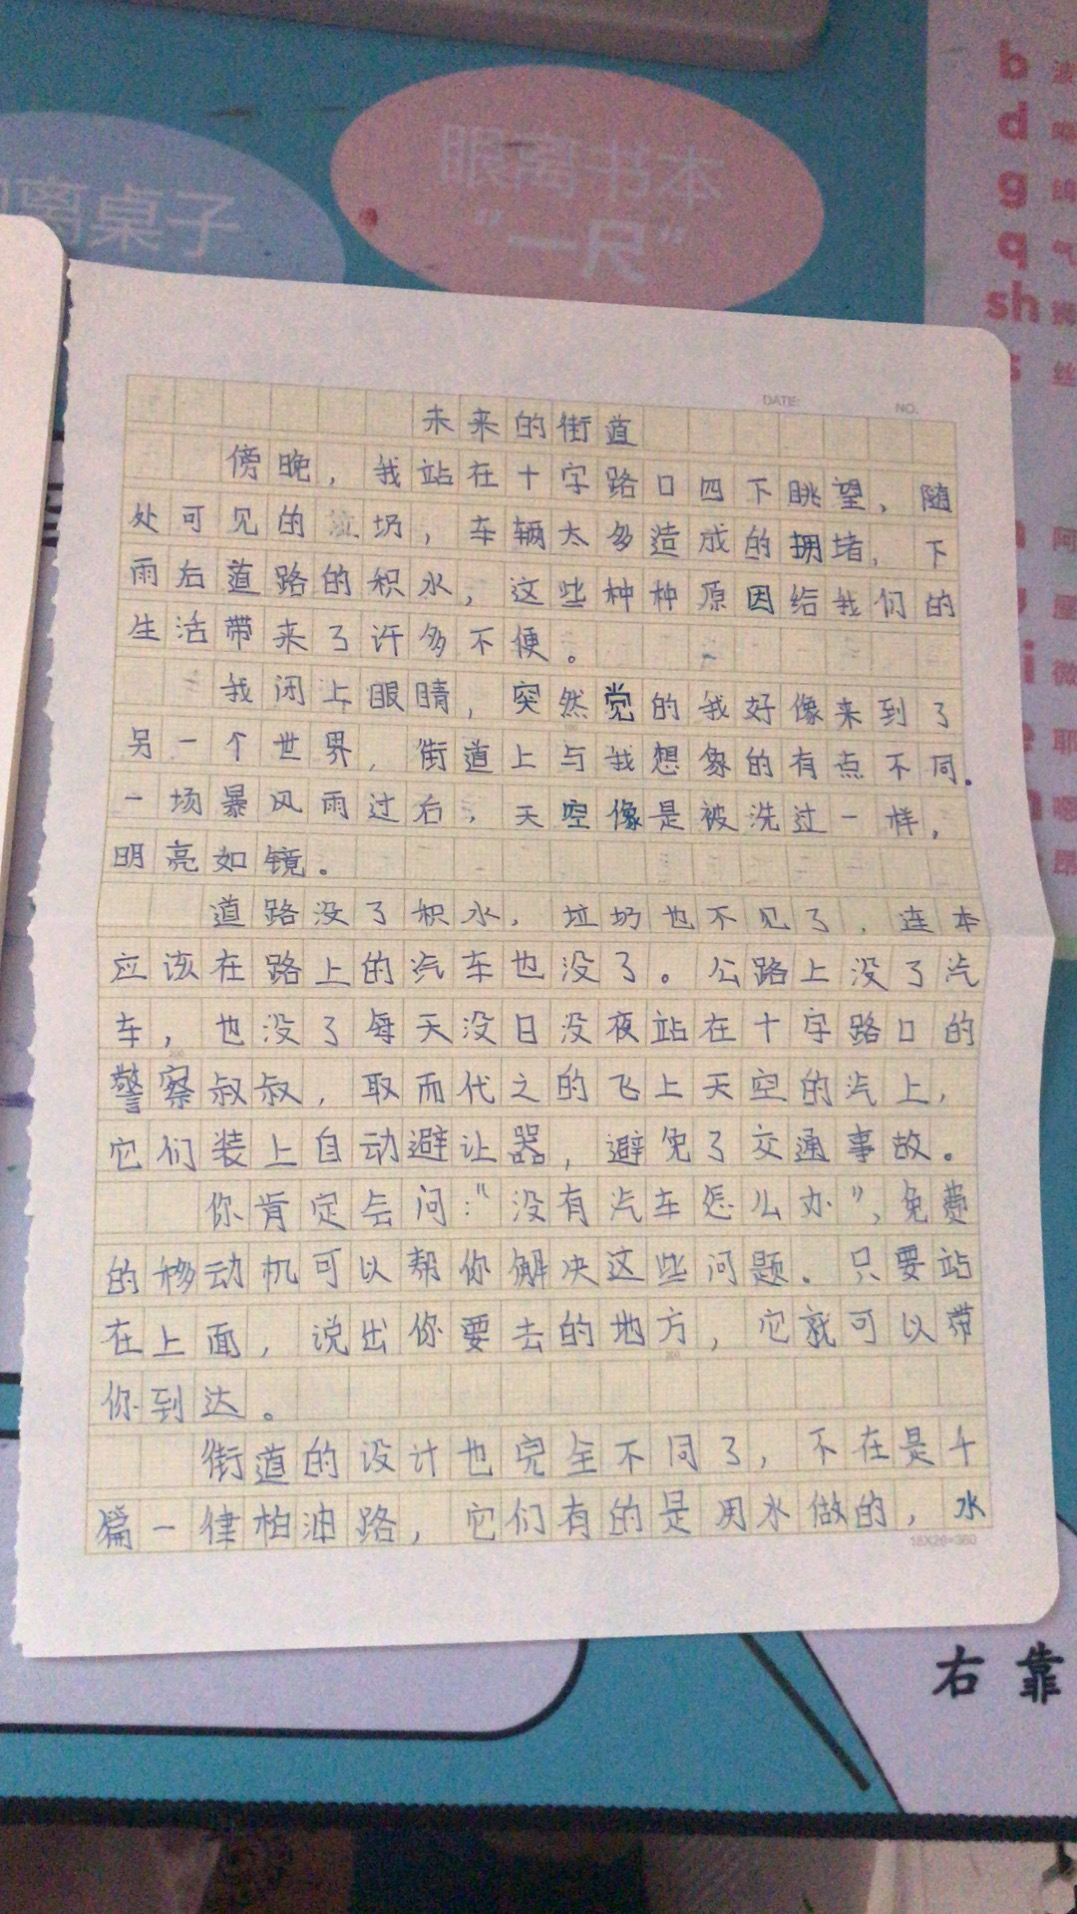 离桌子
眼离书本
“一尺”
b
d
g
q
sh
s
狮
丝
阿
i
微
e
耶
嗯
昂
DATE:
NO.
未来的街道
傍晚，我站在十字路口四下眺望，随
处可见的垃圾，车辆太多造成的拥堵，下
雨后道路的积水，这些种种原因给我们的
生活带来了许多不便。
我闭上眼睛，突然觉的我好像来到了
另一个世界，街道上与我想象的有点不同。
一场暴风雨过后，天空像是被洗过一样，
明亮如镜。
道路没了积水，垃圾也不见了，连本
应该在路上的汽车也没了。公路上没了汽
车，也没了每天没日没夜站在十字路口的
警察叔叔，取而代之的飞上天空的汽上，
它们装上自动避让器，避免了交通事故。
你肯定会问：“没有汽车怎么办”，免费
的移动机可以帮你解决这些问题。只要站
在上面，说出你要去的地方，它就可以带
你到达。
街道的设计也完全不同了，不在是千
篇一律柏油路，它们有的是用水做的，水
18X20=360
右靠